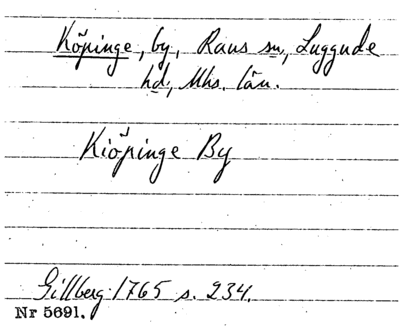 Köpinge, by, Raus sn, Luggude
hd, Mhs. län.
Kiöpinge By
Gillberg 1765 s. 234.
Nr 5691.